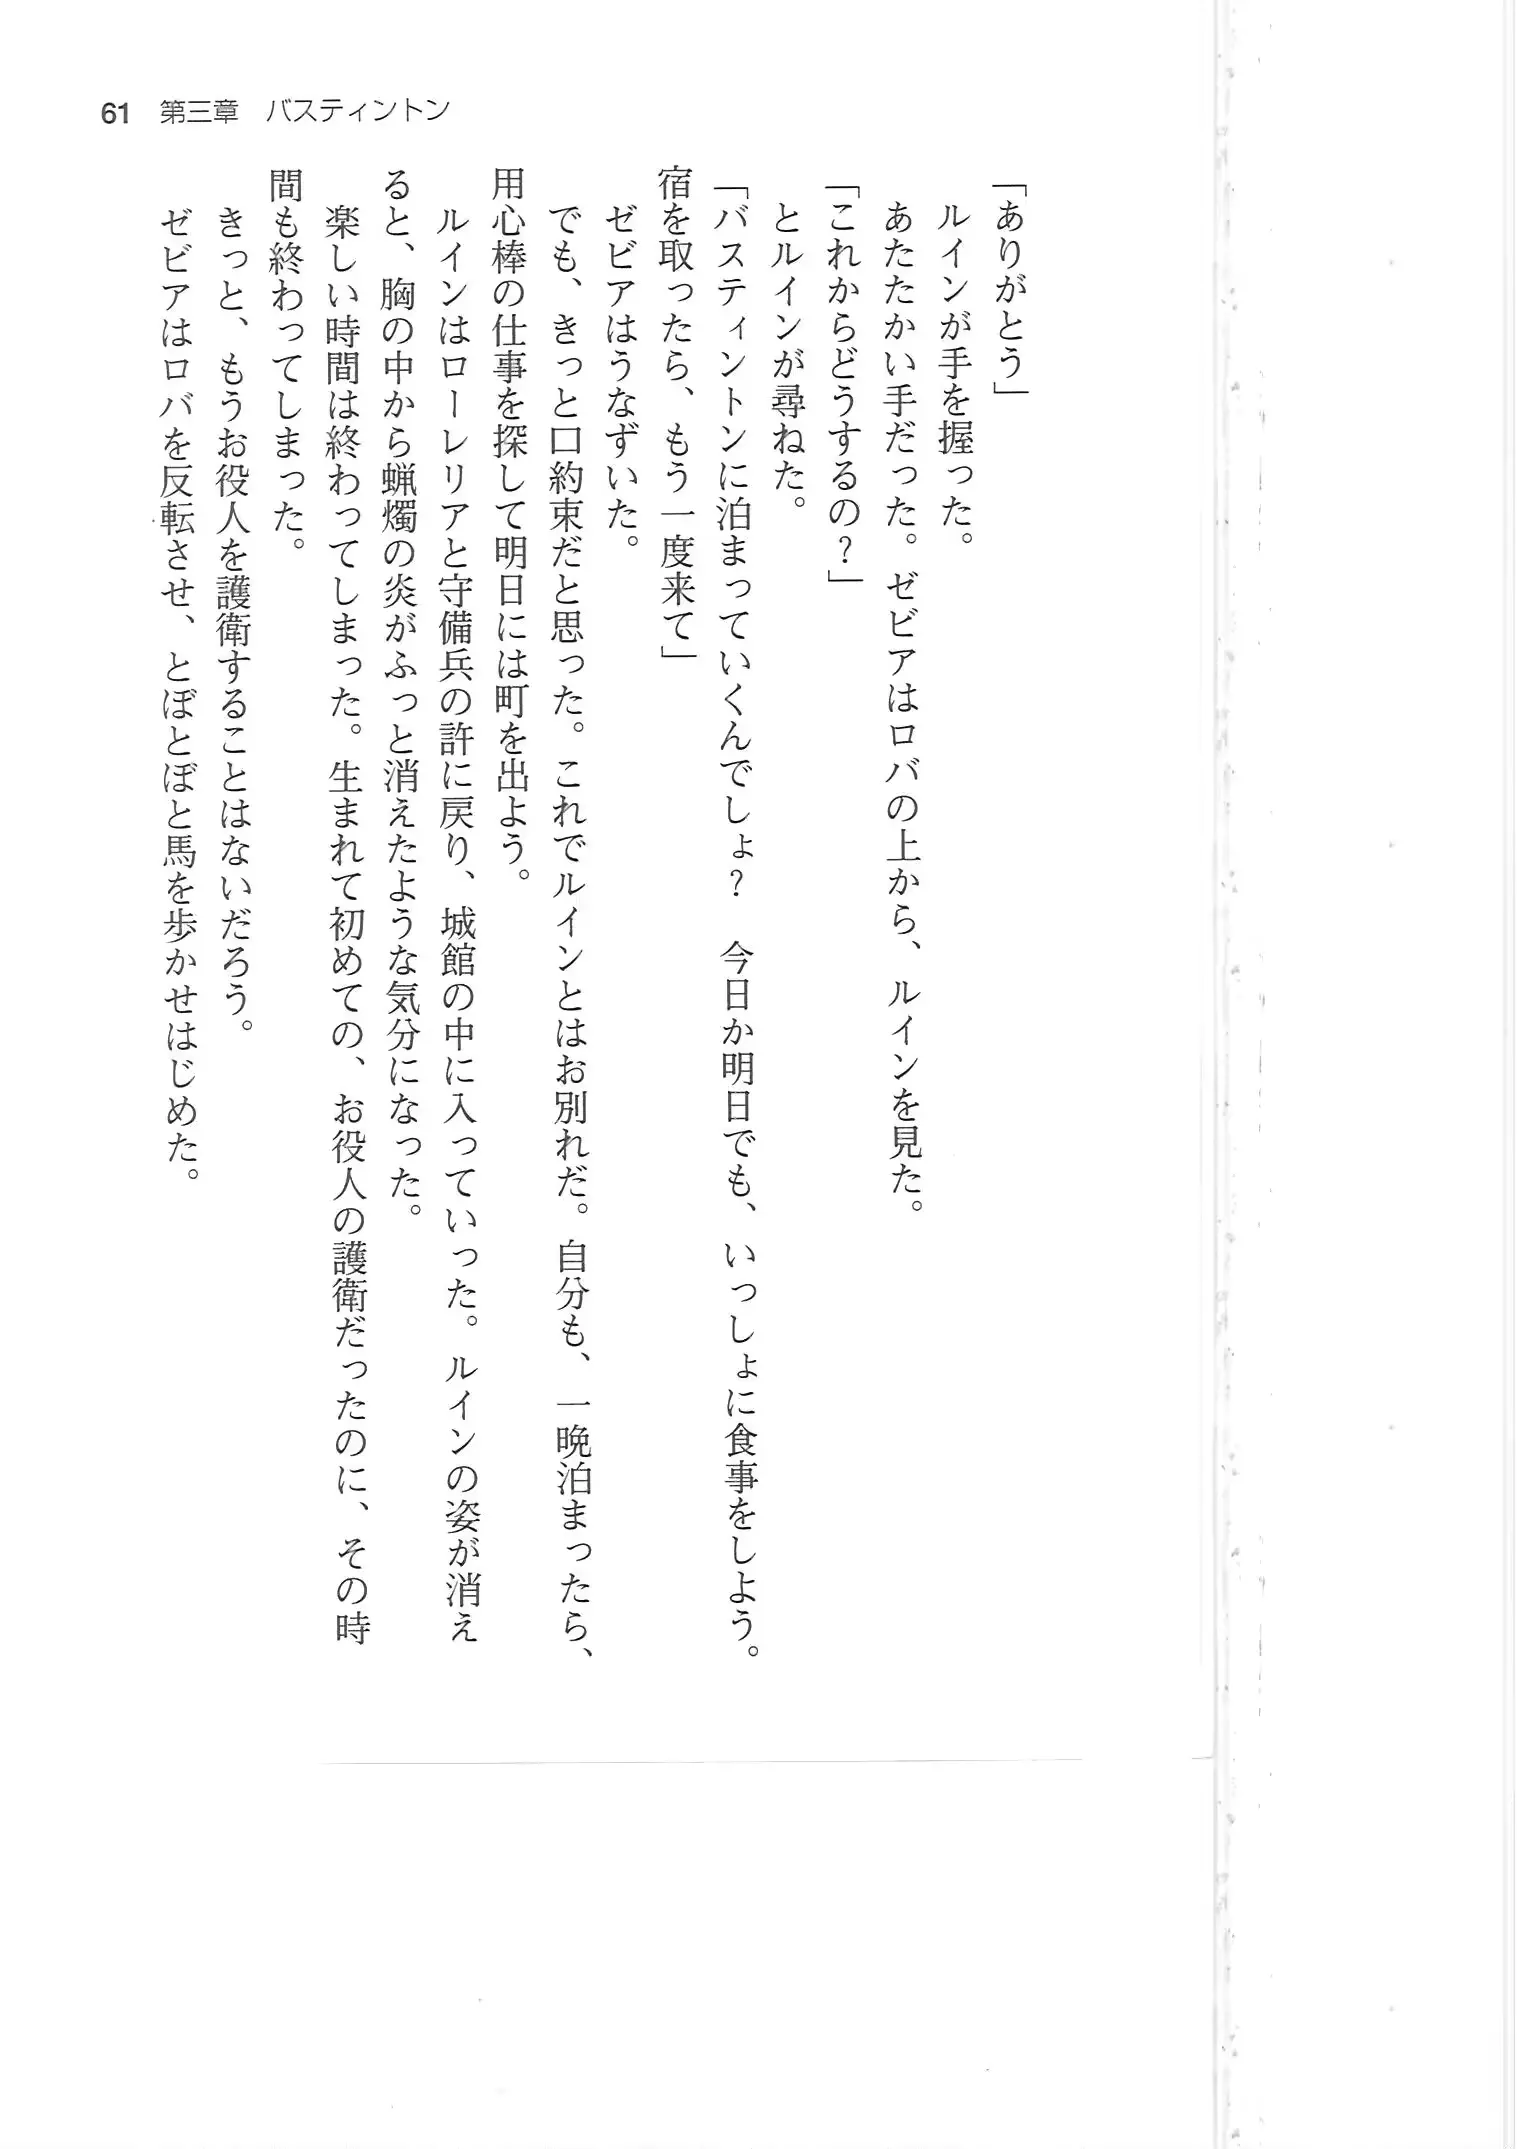 61 第三章 バスティントン
「ありがとう」
ルインが手を握った。
あたたかい手だった。ゼビアはロバの上から、ルインを見た。
「これからどうするの？」
とルインが尋ねた。
「バスティントンに泊まっていくんでしょ？　今日か明日でも、いっしょに食事をしよう。
宿を取ったら、もう一度来て」
ゼビアはうなずいた。
でも、きっと口約束だと思った。これでルインとはお別れだ。自分も、一晩泊まったら、
用心棒の仕事を探して明日には町を出よう。
ルインはローレリアと守備兵の許に戻り、城館の中に入っていった。ルインの姿が消え
ると、胸の中から蝋燭の炎がふっと消えたような気分になった。
楽しい時間は終わってしまった。生まれて初めての、お役人の護衛だったのに、その時
間も終わってしまった。
きっと、もうお役人を護衛することはないだろう。
ゼビアはロバを反転させ、とぼとぼと馬を歩かせはじめた。